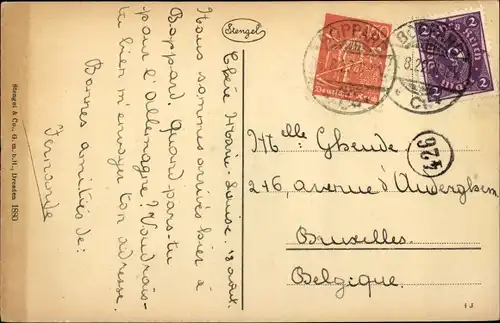 Stengel
Chère Marie-Louise. 13 août.
Nous sommes arrivés hier à
Boppard. Quand pars-tu
pour l'Allemagne? Voudrais-
tu bien m'envoyer ton adresse.
Bonnes amitiés de:
Fernande
Stengel & Co., G. m. b. H., Dresden 1880
BOPPARD
Deutsches Reich
2 2
Mark
Mlle Gheude
246, avenue d'Auderghem
Bruxelles.
Belgique.